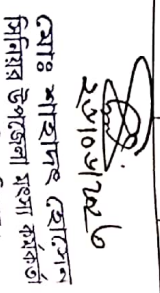 ২৩/০৮/২০২৬
মোঃ শাহাদৎ হোসেন
সিনিয়র উপজেলা মৎস্য কর্মকর্তা